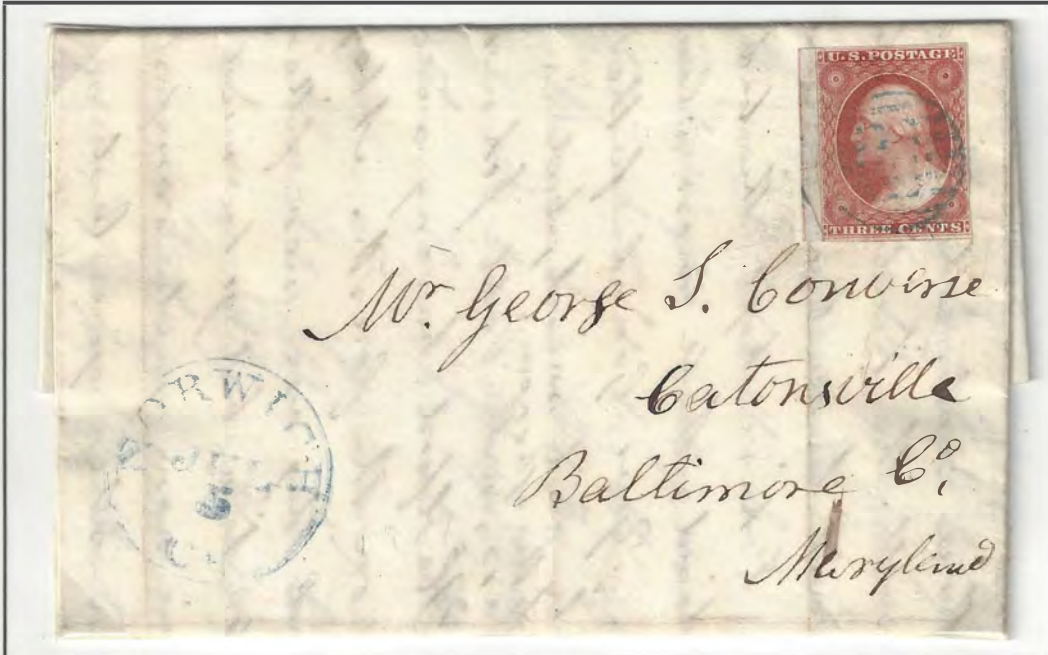 U.S. POSTAGE
THREE CENTS
Mr. George S. Converse
Catonsville
Baltimore Co.
Maryland
NORWICH
5